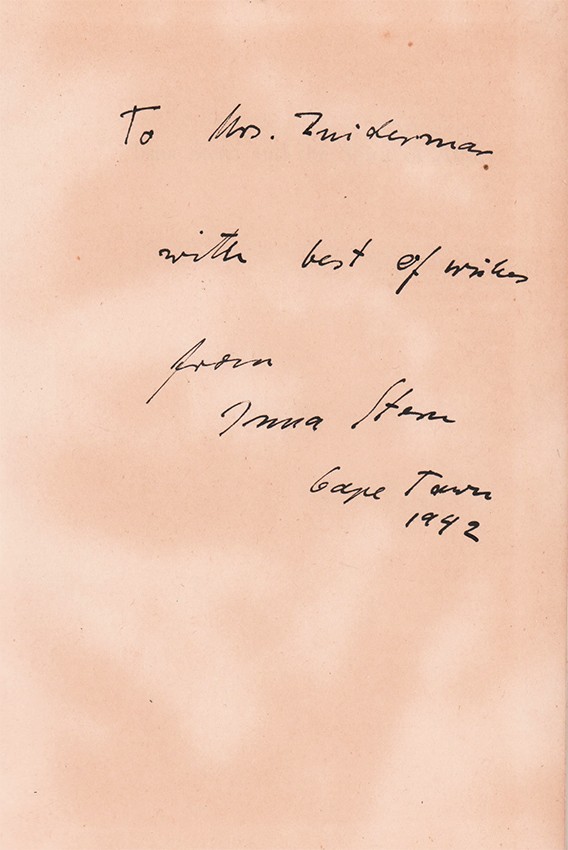 To Mrs. Zuiderman
with best of wishes
from
Irma Stern
Cape Town
1942